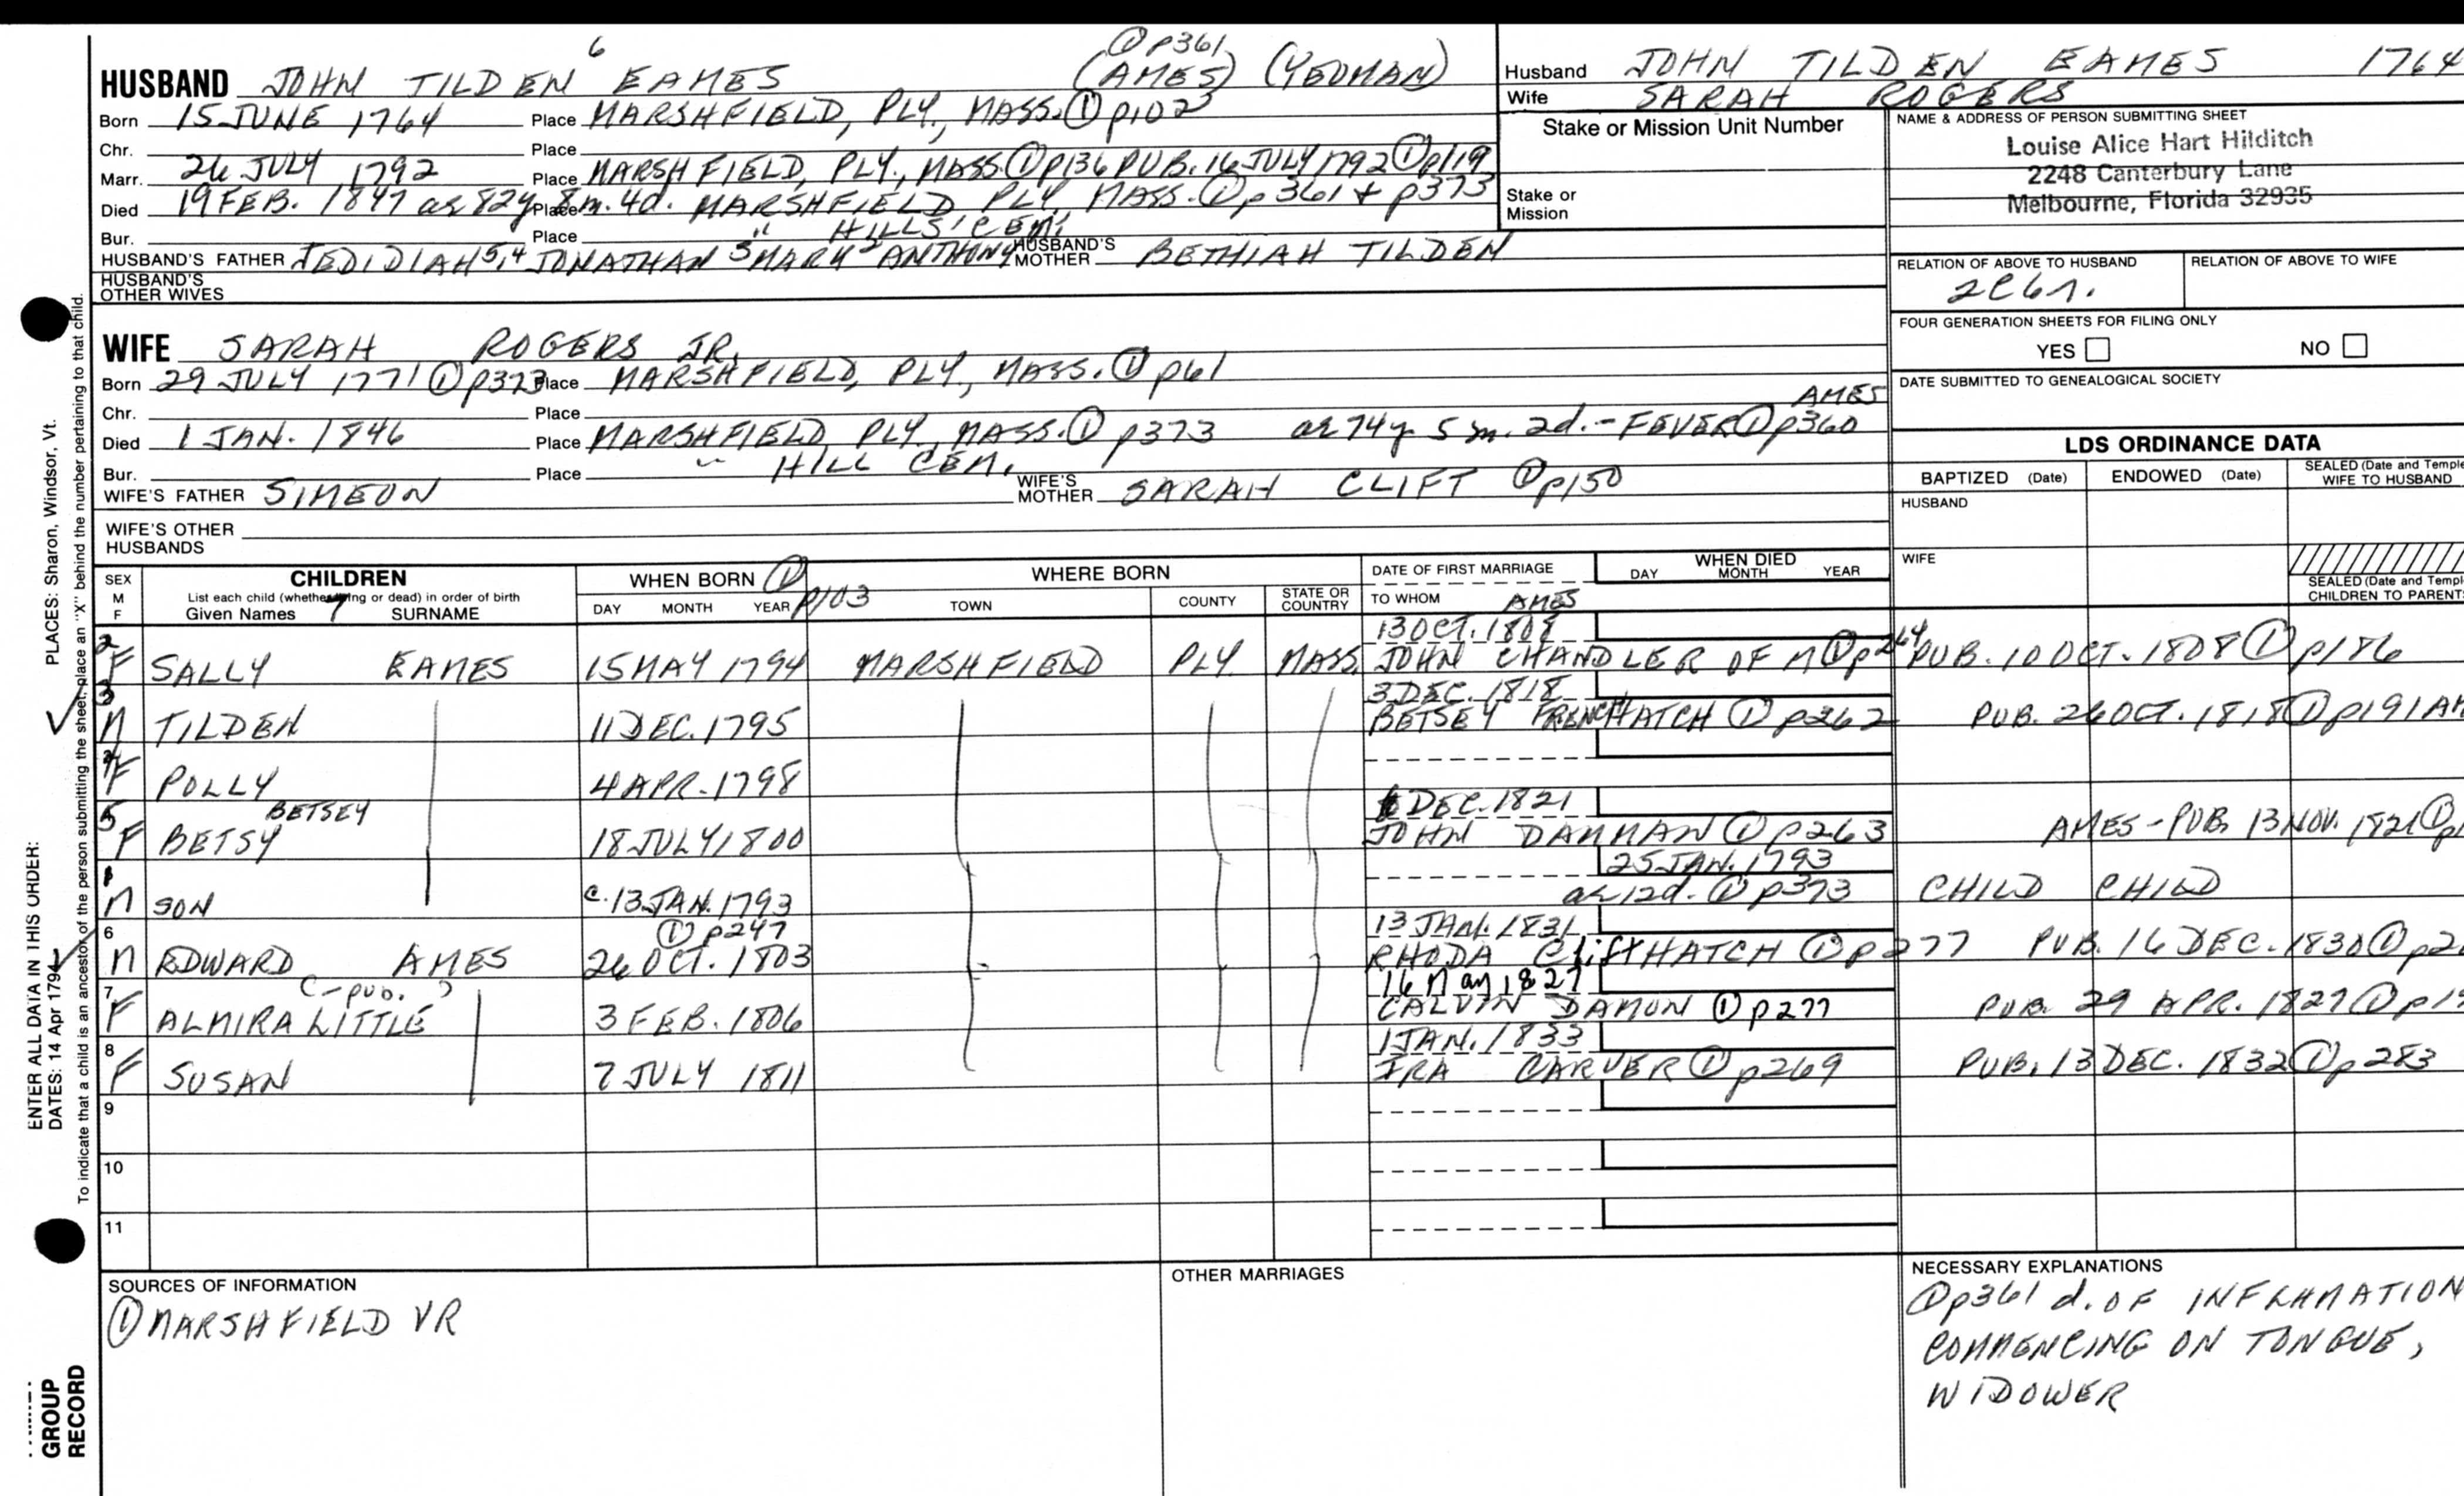 HUSBAND JOHN TILDEN 6 EAMES ① p361 (AMES) (YEOMAN)
Born 15 JUNE 1764 Place MARSHFIELD, PLY., MASS. ① p102
Chr. Place
Marr. 26 JULY 1792 Place MARSHFIELD, PLY., MASS. ① p136 PUB. 16 JULY 1792 ① p119
Died 19 FEB. 1847 ae 82y. 8m. 4d. Place MARSHFIELD PLY. MASS. ① p361 + p373
Bur. Place " HILLS' CEM.
HUSBAND'S FATHER JEDIDIAH 5,4 JONATHAN 3 MARK 2 ANTHONY HUSBAND'S MOTHER BETHIAH TILDEN
HUSBAND'S OTHER WIVES
Husband JOHN TILDEN EAMES 1764
Wife SARAH ROGERS
Stake or Mission Unit Number
Stake or Mission
NAME & ADDRESS OF PERSON SUBMITTING SHEET
Louise Alice Hart Hilditch
2248 Canterbury Lane
Melbourne, Florida 32935
RELATION OF ABOVE TO HUSBAND RELATION OF ABOVE TO WIFE
2C6r.
FOUR GENERATION SHEETS FOR FILING ONLY
YES NO
DATE SUBMITTED TO GENEALOGICAL SOCIETY
WIFE SARAH ROGERS JR.
Born 29 JULY 1771 ① p373 Place MARSHFIELD, PLY., MASS. ① p61
Chr. Place AMES
Died 1 JAN. 1846 Place MARSHFIELD PLY. MASS. ① p373 ae 74y 5m. 2d. - FEVER ① p360
Bur. Place " HILL CEM.
WIFE'S FATHER SIMEON WIFE'S MOTHER SARAH CLIFT ① p150
WIFE'S OTHER HUSBANDS
LDS ORDINANCE DATA
BAPTIZED (Date) ENDOWED (Date) SEALED (Date and Temple) WIFE TO HUSBAND
HUSBAND
WIFE
SEALED (Date and Temple) CHILDREN TO PARENTS
SEX M F CHILDREN List each child (whether living or dead) in order of birth Given Names 7 SURNAME
WHEN BORN ① p103 DAY MONTH YEAR
WHERE BORN TOWN COUNTY STATE OR COUNTRY
DATE OF FIRST MARRIAGE TO WHOM AMES
WHEN DIED DAY MONTH YEAR
13 OCT. 1808
2 F SALLY EAMES 15 MAY 1794 MARSHFIELD PLY. MASS. JOHN CHANDLER OF M ① p264 PUB. 10 OCT. 1808 ① p186
3 DEC. 1818
3 M TILDEN 11 DEC. 1795 BETSEY FRENCH HATCH ① p262 PUB. 26 OCT. 1818 ① p191
4 F POLLY 4 APR. 1798
BETSEY DEC. 1821
5 F BETSY 18 JULY 1800 JOHN DAMMAN ① p263 AMES - PUB. 13 NOV. 1821 ①
25 JAN. 1793
1 M SON c. 13 JAN. 1793 ae 12d. ① p373 CHILD CHILD
① p247 13 JAN. 1831
6 M EDWARD AMES 26 OCT. 1803 RHODA Clift HATCH ① p277 PUB. 16 DEC. 1830 ①
C-pub. 16 May 1827
7 F ALMIRA LITTLE 3 FEB. 1806 CALVIN DAMON ① p277 PUB. 29 APR. 1827 ①
1 JAN. 1833
8 F SUSAN 7 JULY 1811 IRA CARVER ① p269 PUB. 13 DEC. 1832 ① p283
9
10
11
SOURCES OF INFORMATION
① MARSHFIELD VR
OTHER MARRIAGES
NECESSARY EXPLANATIONS
① p361 d. OF INFLAMATION
COMMENCING ON TONGUE,
WIDOWER
ENTER ALL DATA IN THIS ORDER:
DATES: 14 Apr 1794
PLACES: Sharon, Windsor, Vt.
To indicate that a child is an ancestor of the person submitting the sheet, place an "X" behind the number pertaining to that child.
GROUP
RECORD